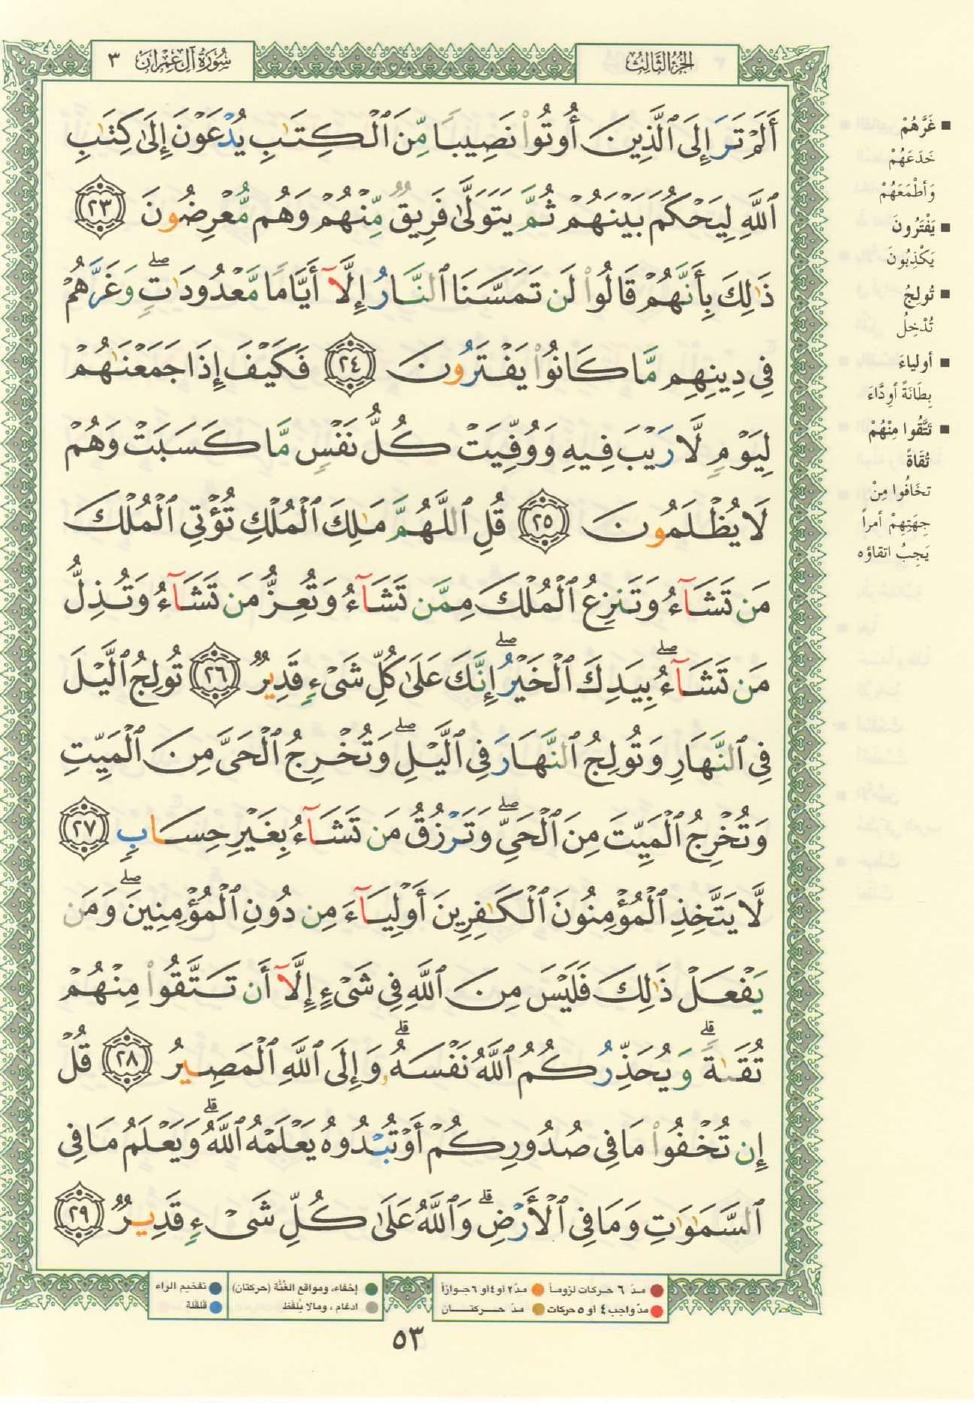 سُورَةُ آلِ عِمْرَانَ ٣
الجُزْءُ الثَّالِثُ
أَلَمْ تَرَ إِلَى ٱلَّذِينَ أُوتُوا۟ نَصِيبًا مِّنَ ٱلْكِتَٰبِ يُدْعَوْنَ إِلَىٰ كِتَٰبِ
ٱللَّهِ لِيَحْكُمَ بَيْنَهُمْ ثُمَّ يَتَوَلَّىٰ فَرِيقٌ مِّنْهُمْ وَهُم مُّعْرِضُونَ ٢٣
ذَٰلِكَ بِأَنَّهُمْ قَالُوا۟ لَن تَمَسَّنَا ٱلنَّارُ إِلَّآ أَيَّامًا مَّعْدُودَٰتٍۖ وَغَرَّهُمْ
فِى دِينِهِم مَّا كَانُوا۟ يَفْتَرُونَ ٢٤ فَكَيْفَ إِذَا جَمَعْنَٰهُمْ
لِيَوْمٍ لَّا رَيْبَ فِيهِ وَوُفِّيَتْ كُلُّ نَفْسٍ مَّا كَسَبَتْ وَهُمْ
لَا يُظْلَمُونَ ٢٥ قُلِ ٱللَّهُمَّ مَٰلِكَ ٱلْمُلْكِ تُؤْتِى ٱلْمُلْكَ
مَن تَشَآءُ وَتَنزِعُ ٱلْمُلْكَ مِمَّن تَشَآءُ وَتُعِزُّ مَن تَشَآءُ وَتُذِلُّ
مَن تَشَآءُۖ بِيَدِكَ ٱلْخَيْرُۖ إِنَّكَ عَلَىٰ كُلِّ شَىْءٍ قَدِيرٌ ٢٦ تُولِجُ ٱلَّيْلَ
فِى ٱلنَّهَارِ وَتُولِجُ ٱلنَّهَارَ فِى ٱلَّيْلِۖ وَتُخْرِجُ ٱلْحَىَّ مِنَ ٱلْمَيِّتِ
وَتُخْرِجُ ٱلْمَيِّتَ مِنَ ٱلْحَىِّۖ وَتَرْزُقُ مَن تَشَآءُ بِغَيْرِ حِسَابٍ ٢٧
لَّا يَتَّخِذِ ٱلْمُؤْمِنُونَ ٱلْكَٰفِرِينَ أَوْلِيَآءَ مِن دُونِ ٱلْمُؤْمِنِينَۖ وَمَن
يَفْعَلْ ذَٰلِكَ فَلَيْسَ مِنَ ٱللَّهِ فِى شَىْءٍ إِلَّآ أَن تَتَّقُوا۟ مِنْهُمْ
تُقَىٰةًۗ وَيُحَذِّرُكُمُ ٱللَّهُ نَفْسَهُۥۗ وَإِلَى ٱللَّهِ ٱلْمَصِيرُ ٢٨ قُلْ
إِن تُخْفُوا۟ مَا فِى صُدُورِكُمْ أَوْ تُبْدُوهُ يَعْلَمْهُ ٱللَّهُۗ وَيَعْلَمُ مَا فِى
ٱلسَّمَٰوَٰتِ وَمَا فِى ٱلْأَرْضِۗ وَٱللَّهُ عَلَىٰ كُلِّ شَىْءٍ قَدِيرٌ ٢٩
■ غَرَّهُمْ
خَدَعَهُمْ
وَأَطْمَعَهُمْ
■ يَفْتَرُونَ
يَكْذِبُونَ
■ تُولِجُ
تُدْخِلُ
■ أولياءَ
بِطَانَةً أوِدَّاءَ
■ تَتَّقُوا مِنْهُمْ
تُقَاةً
تخَافُوا مِنْ
جِهَتِهِمْ أمراً
يَجِبُ اتقاؤه
مدّ ٦ حركات لزوماً مدّ ٢ او ٤ او ٦ جوازاً
مدّ واجب ٤ او ٥ حركات مدّ حركتان
إخفاء، ومواقع الغُنَّة (حركتان)
ادغام ، ومالا يُلفَظ
تفخيم الراء
قلقلة
٥٣